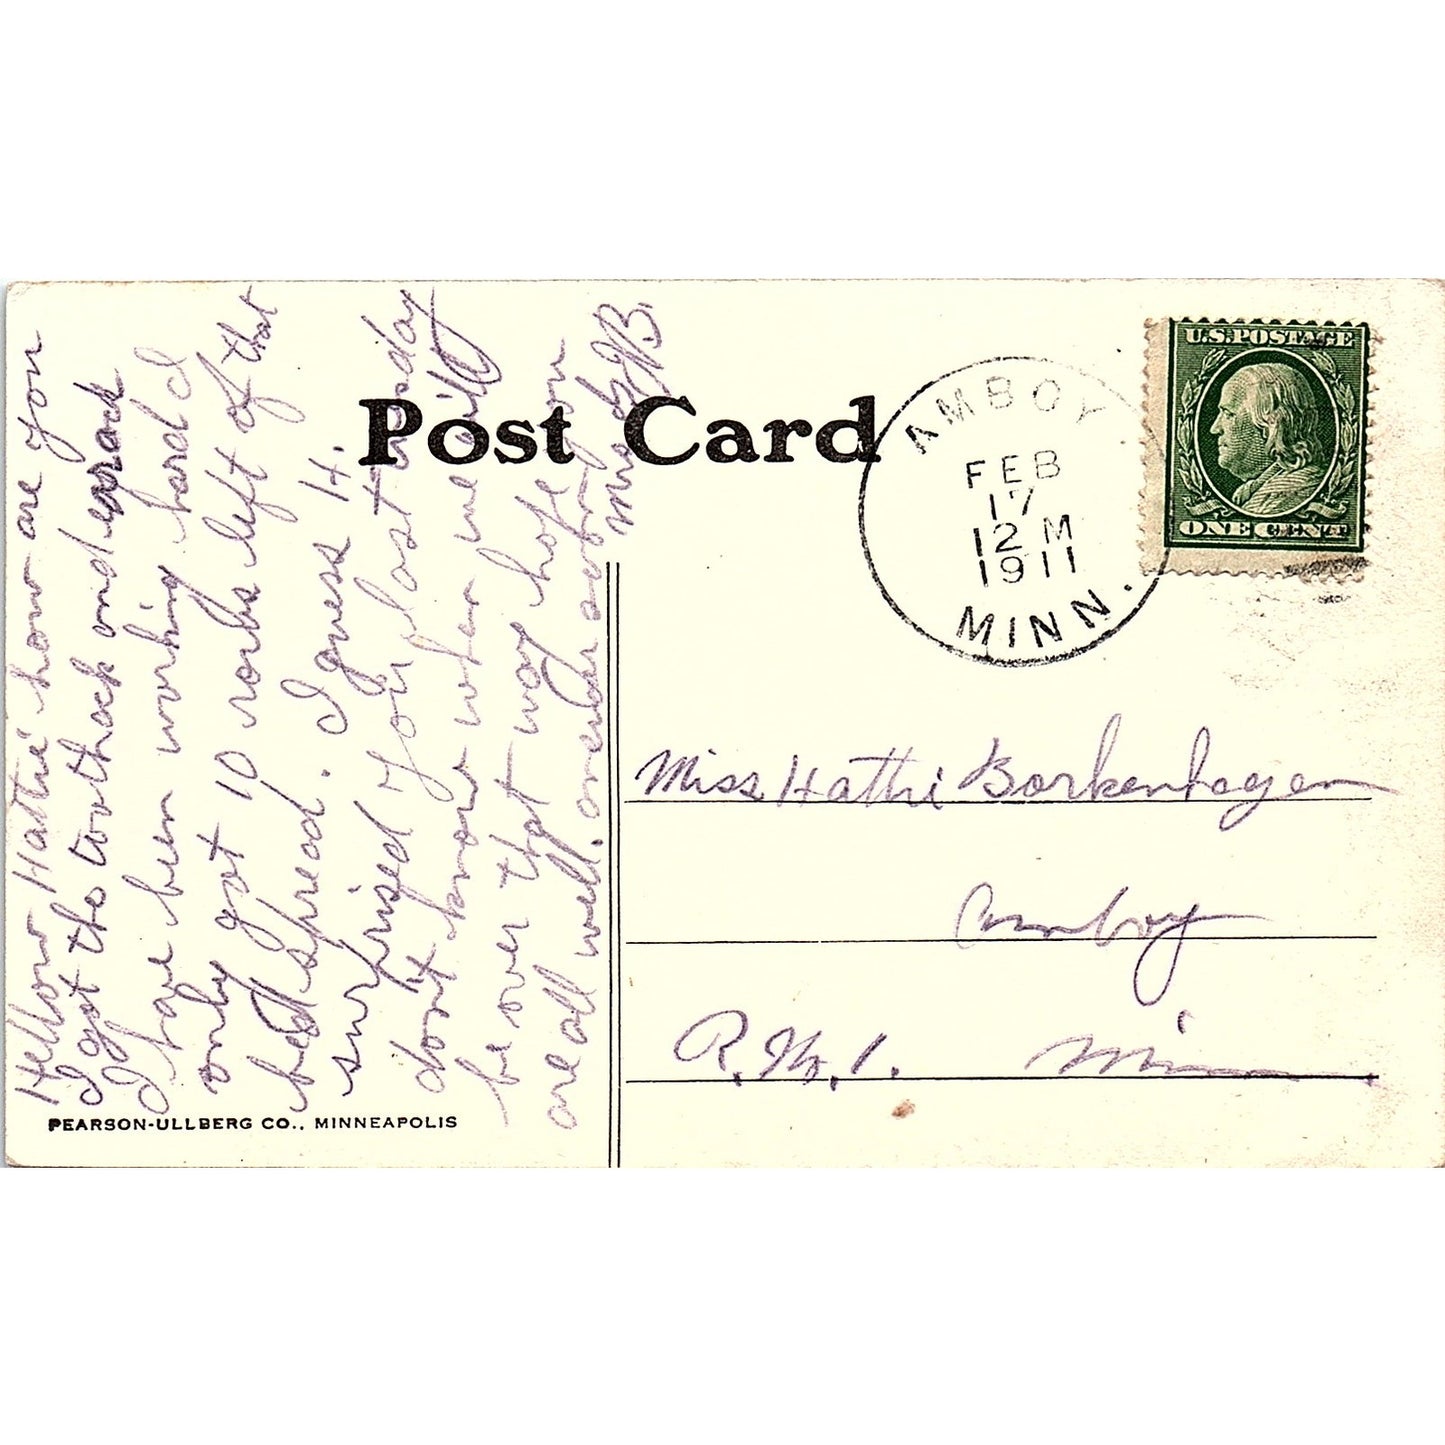 Post Card
AMBOY
FEB
17
12 M
1911
MINN.
U.S. POSTAGE
ONE CENT
Hellow Hattie how are you
I got the toothack and
I have been working hard I
only got 10 rows left of that
bed spread. I guess I
surprised you last tuesday
dont know when we will
be over that way hope you
are all well. over soon
Miss Hattie Borkenhagen
Amboy
R. No. 1. Minn.
PEARSON-ULLBERG CO., MINNEAPOLIS